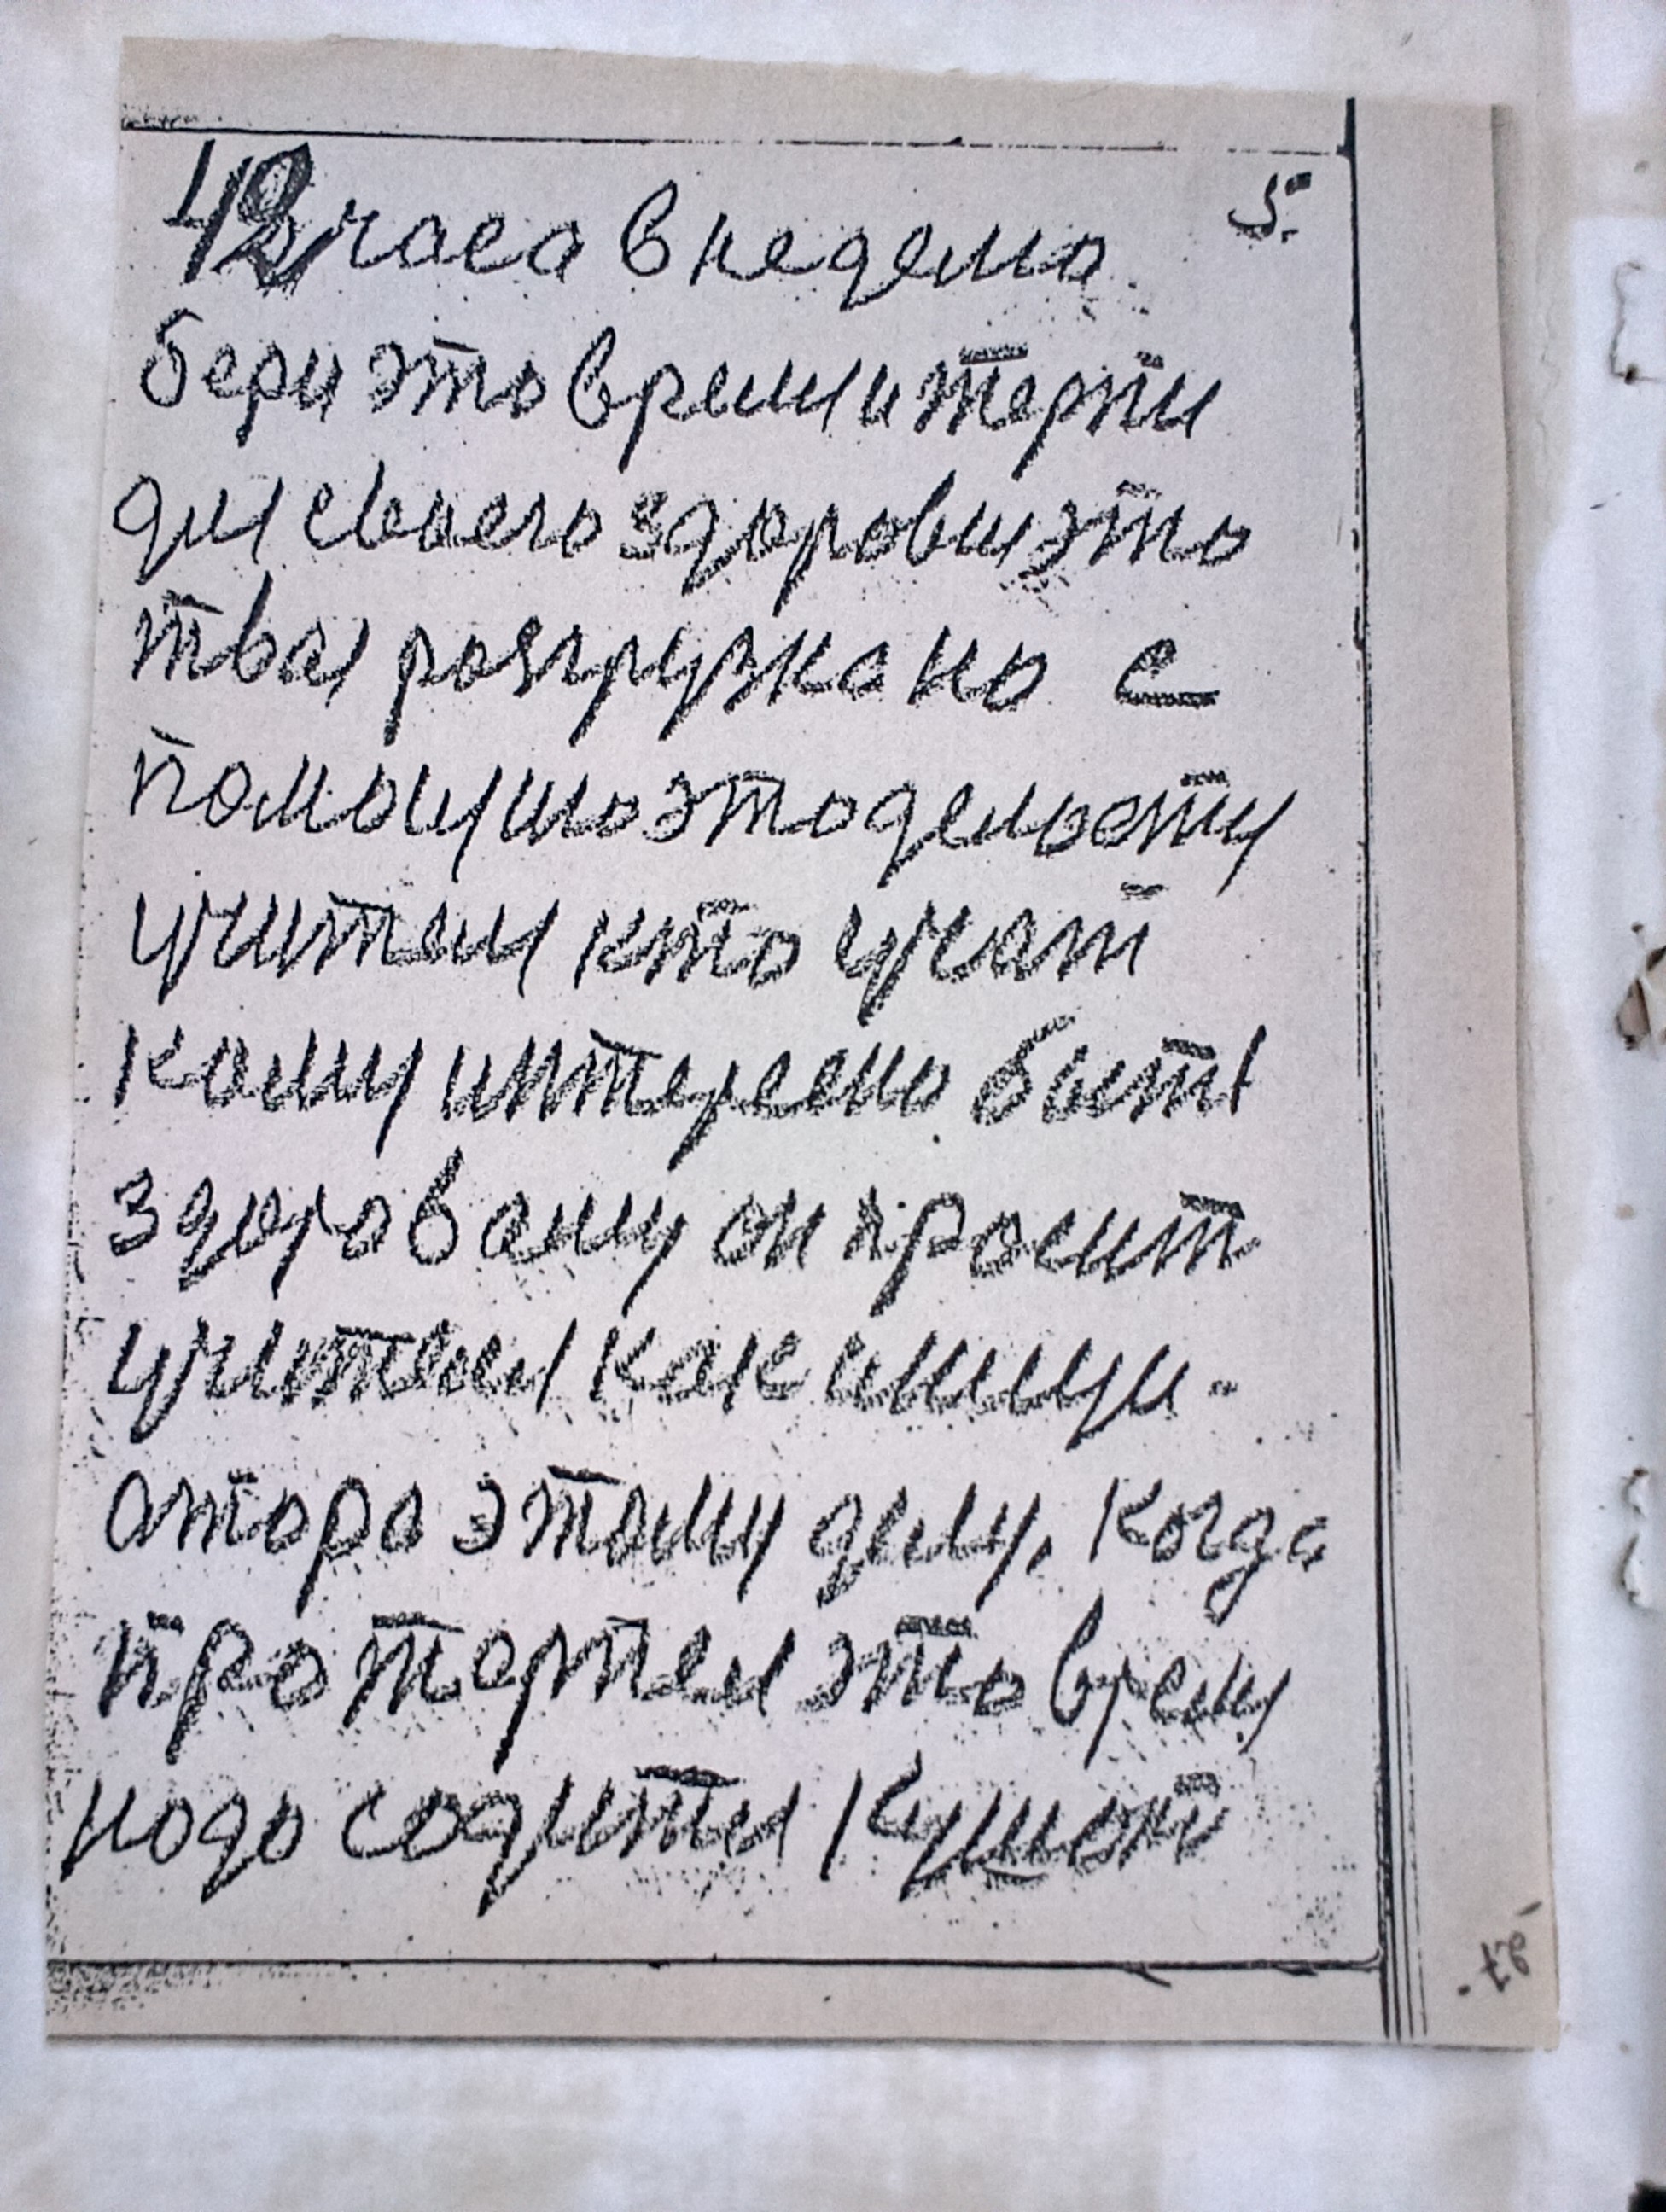 5.
42 часа в неделю
бери это время и терпи
для своего здоровия это
твая разгрузка но с
помощшю это дельność
учителя кто учат
кому интересно быть
здороваму он просит
учителя как иници-
атора этому делу. Когда
протерпел это время
надо садится кушат
27.